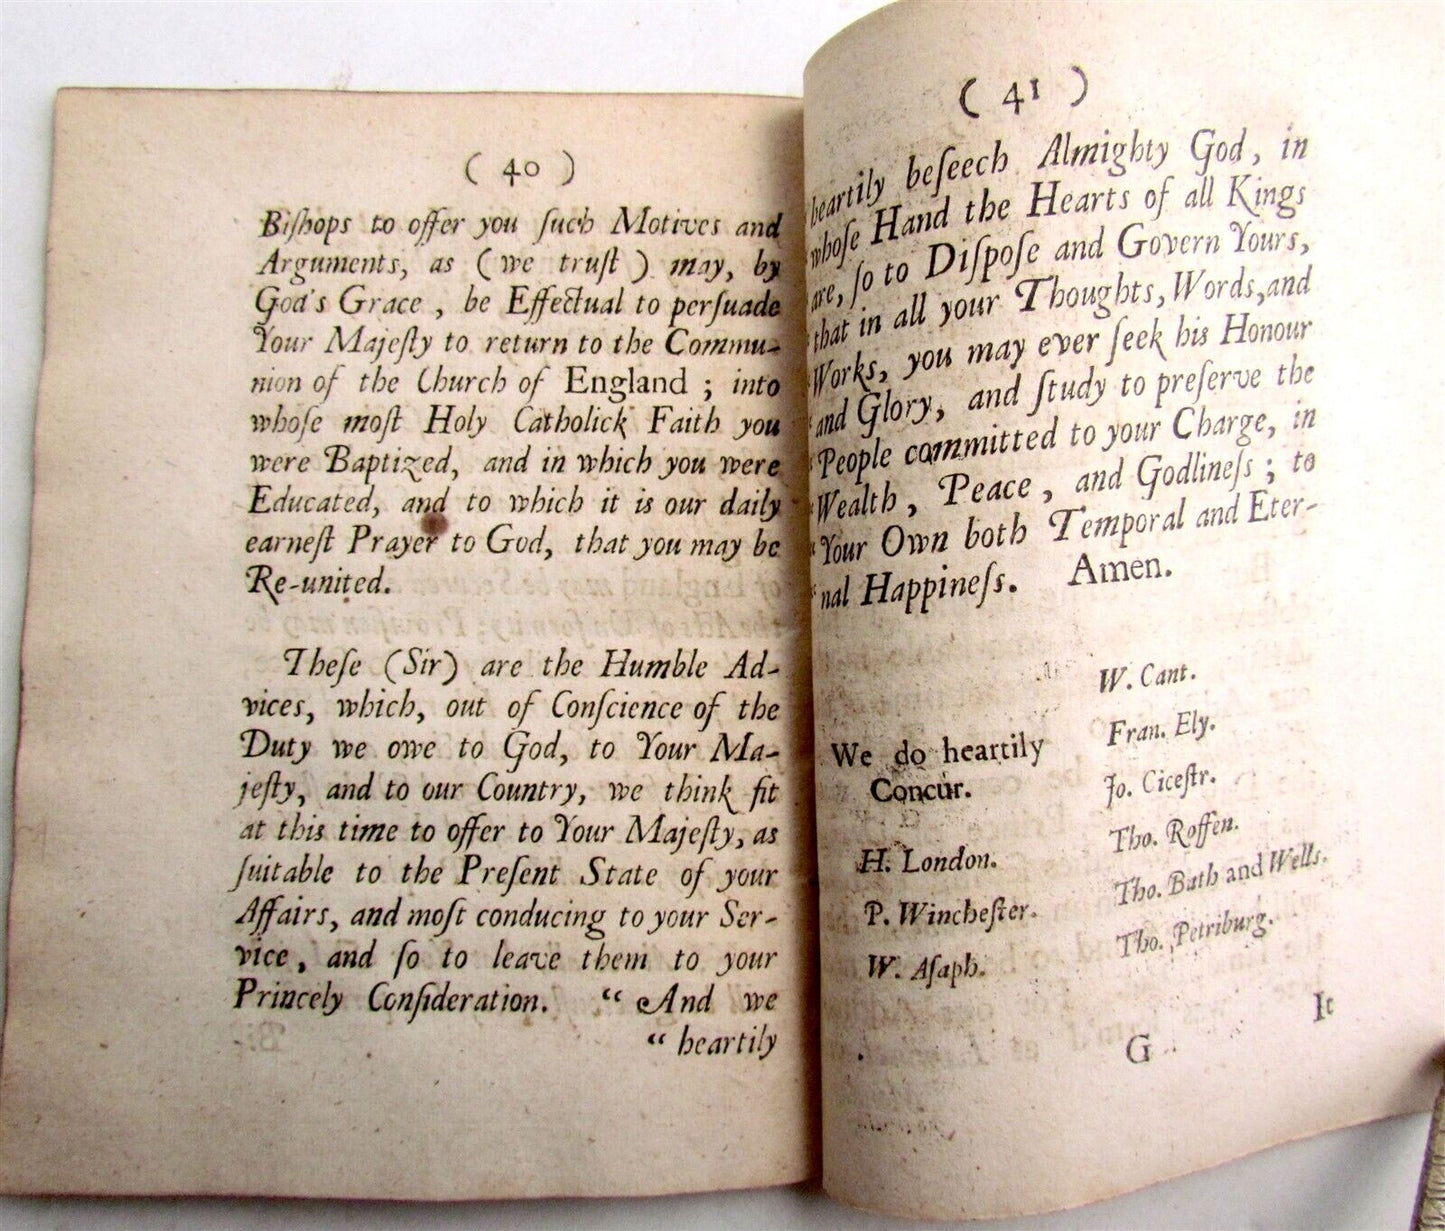 ( 40 )
Biſhops to offer you ſuch Motives and
Arguments, as ( we truſt ) may, by
God's Grace , be Effectual to perſuade
Your Majeſty to return to the Commu-
nion of the Church of England ; into
whoſe moſt Holy Catholick Faith you
were Baptized, and in which you were
Educated, and to which it is our daily
earneſt Prayer to God, that you may be
Re-united.
Theſe (Sir) are the Humble Ad-
vices, which, out of Conſcience of the
Duty we owe to God, to Your Ma-
jeſty, and to our Country, we think fit
at this time to offer to Your Majeſty, as
ſuitable to the Preſent State of your
Affairs, and moſt conducing to your Ser-
vice, and ſo to leave them to your
Princely Conſideration. “ And we
“ heartily
( 41 )
heartily beſeech Almighty God, in
whoſe Hand the Hearts of all Kings
are, ſo to Diſpoſe and Govern Yours,
that in all your Thoughts, Words, and
Works, you may ever ſeek his Honour
and Glory, and ſtudy to preſerve the
People committed to your Charge, in
Wealth, Peace, and Godlineſs ; to
Your Own both Temporal and Eter-
nal Happineſs. Amen.
We do heartily
Concur.
H. London.
P. Wincheſter.
W. Aſaph.
W. Cant.
Fran. Ely.
Jo. Ciceſtr.
Tho. Roffen.
Tho. Bath and Wells.
Tho. Petriburg.
G
It